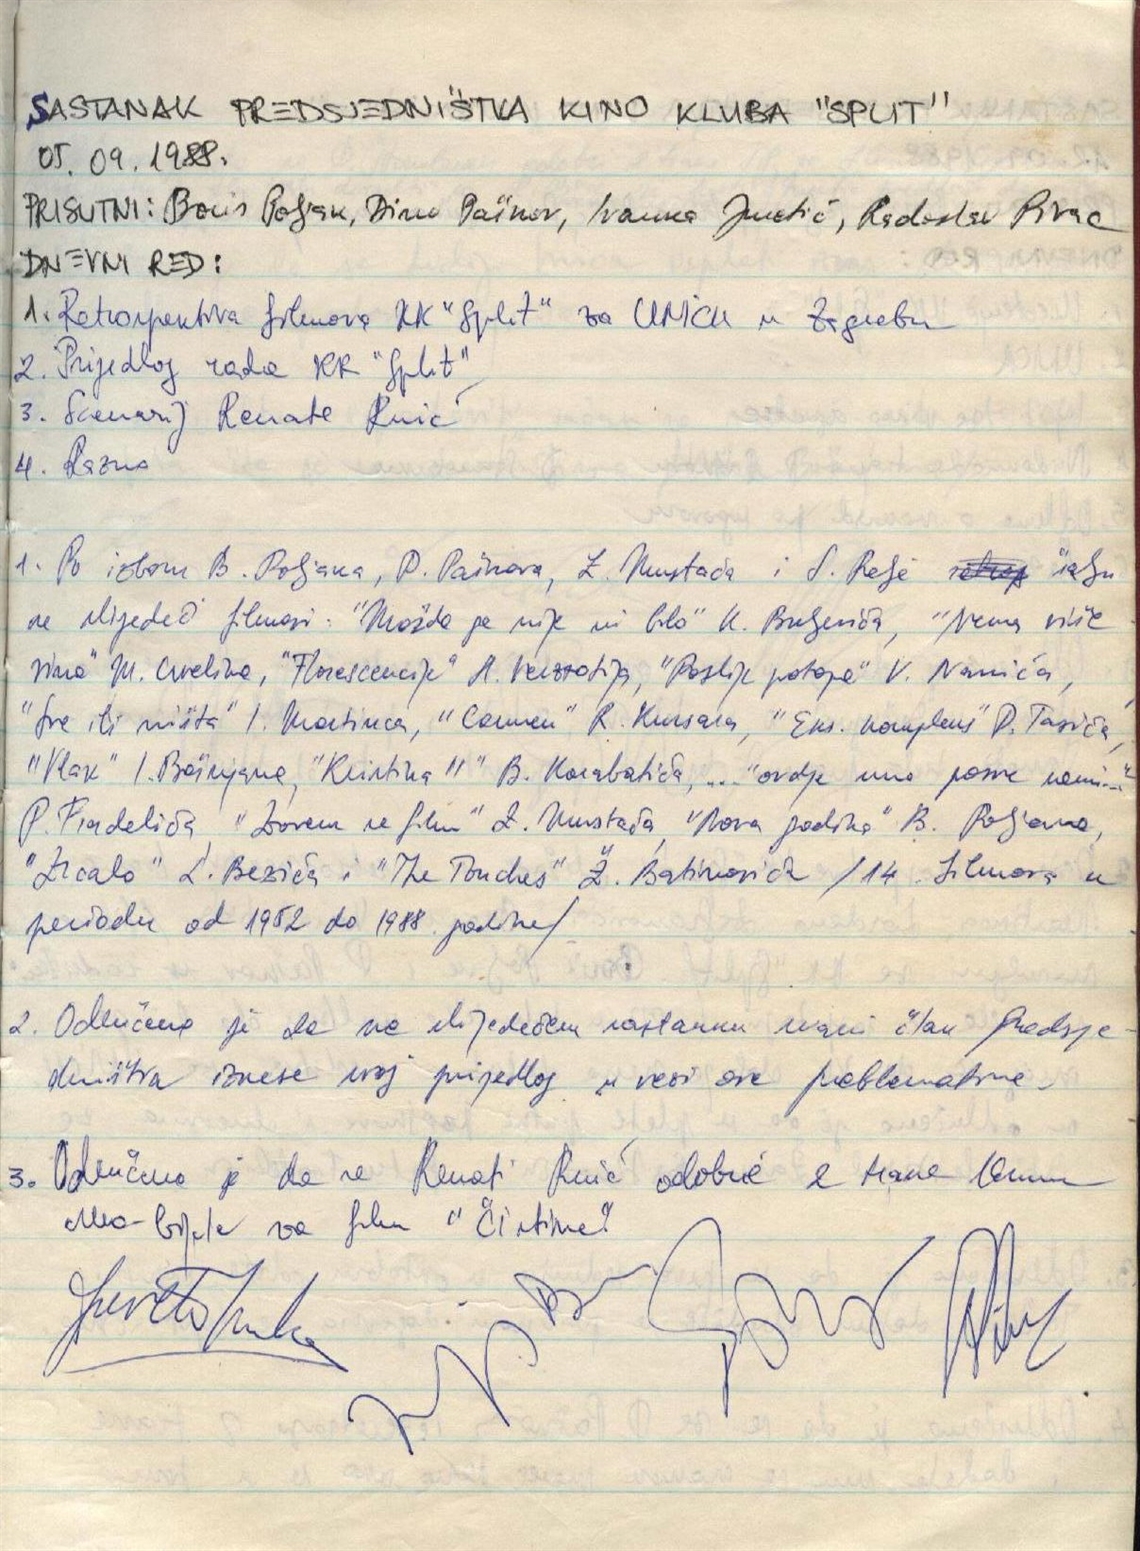 SASTANAK PREDSJEDNIŠTVA KINO KLUBA "SPLIT"
05. 09. 1988.
PRISUTNI: Boris Poljak, Dino Pašnov, Ivanka Juretić, Radoslav Pivac
DNEVNI RED:
1. Retrospektiva filmova KK "Split" za UNICU u Zagrebu
2. Prijedlog rada KK "Split"
3. Scenarij Renate Ruić
4. Razno
1. Po izboru B. Poljaka, D. Pašnova, Ž. Mustaća i S. Režé šalju
se slijedeći filmovi: "Možda ga nije ni bilo" K. Buljevića, "Nema više
zime" M. Cvelina, "Florescencije" A. Verzotija, "Poslije potopa" V. Nanića,
"Sve ili ništa" I. Martinca, "Carmen" R. Kursara, "Eks. kompleks" D. Tasića,
"Vlak" I. Bošnjaka, "Kristina II" B. Karabatića, ... "ovdje smo posve
P. Fradelića, "Zovem se film" Ž. Mustaća, "Nova godina" B. Poljaka,
"Zrcalo" L. Bezića i "The Touches" Ž. Batinovića /14 filmova u
periodu od 1952 do 1988. godine/
2. Odlučeno je da na slijedećem sastanku svaki član Predsje-
dništva iznese svoj prijedlog u vezi ove problematike.
3. Odlučeno je da se Renati Ruić odobri 2 trake
crno-bijele za film "Čistine"